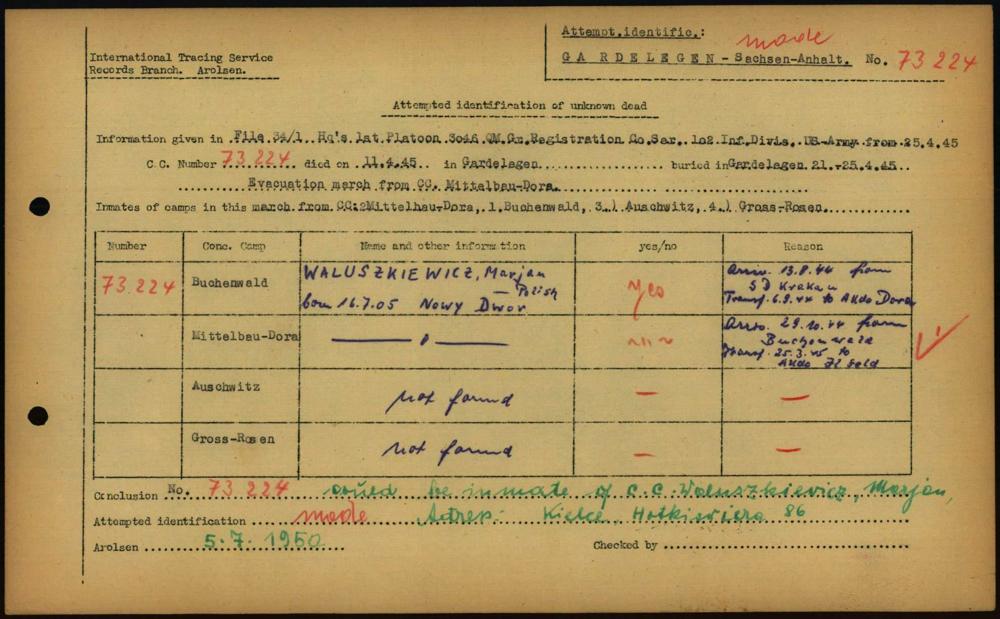 Attempt.identific.:
made
GARDELEGEN - Sachsen-Anhalt. No. 73 224
International Tracing Service
Records Branch. Arolsen.
Attempted identification of unknown dead
Information given in File 34/1 Hq's 1st Platoon 3046 QM.Gr.Registration Co.Ser. 102 Inf.Divis. US-Army from 25.4.45
C.C. Number 73 224 died on 11.4.45 in Gardelagen buried in Gardelagen 21.-25.4.45
Evacuation march from CC. Mittelbau-Dora.
Inmates of camps in this march from CC:2Mittelbau-Dora, 1.Buchenwald, 3.) Auschwitz, 4.) Gross-Rosen
Number Conc. Camp Name and other information yes/no Reason
73.224 Buchenwald WALUSZKIEWICZ, Marjan — Polish born 16.7.05 Nowy Dwor yes Arriv. 13.8.44 from SD Krakau Transf. 6.9.44 to AKdo Dora
Mittelbau-Dora — " — Arriv. 29.10.44 from Buchenwald Transf. 25.3.45 to AKdo
Auschwitz not found — —
Gross-Rosen not found — —
Conclusion No. 73 224 could be inmate of C.C. Waluszkievicz, Marjan,
Attempted identification made Adres: Kielce, 86
Arolsen 5.7.1950 Checked by